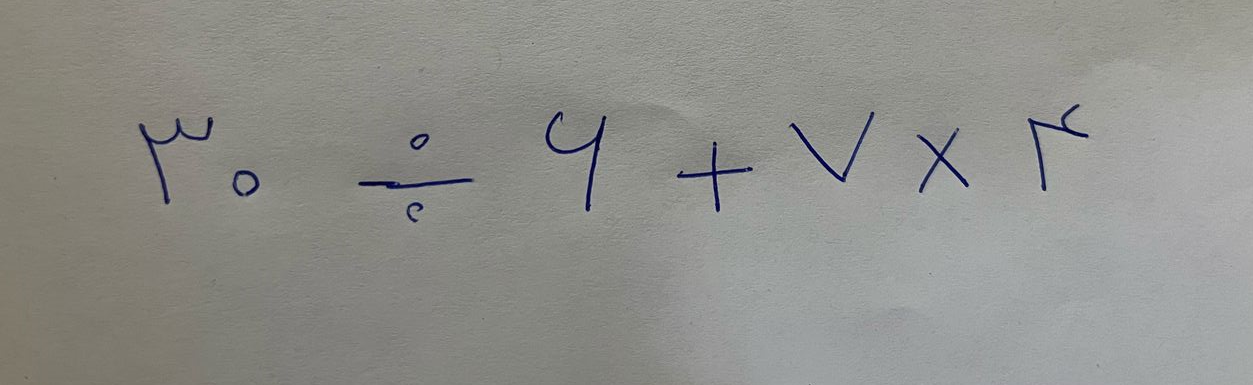 ۳۰ ÷ ۶ + ۷ × ۴